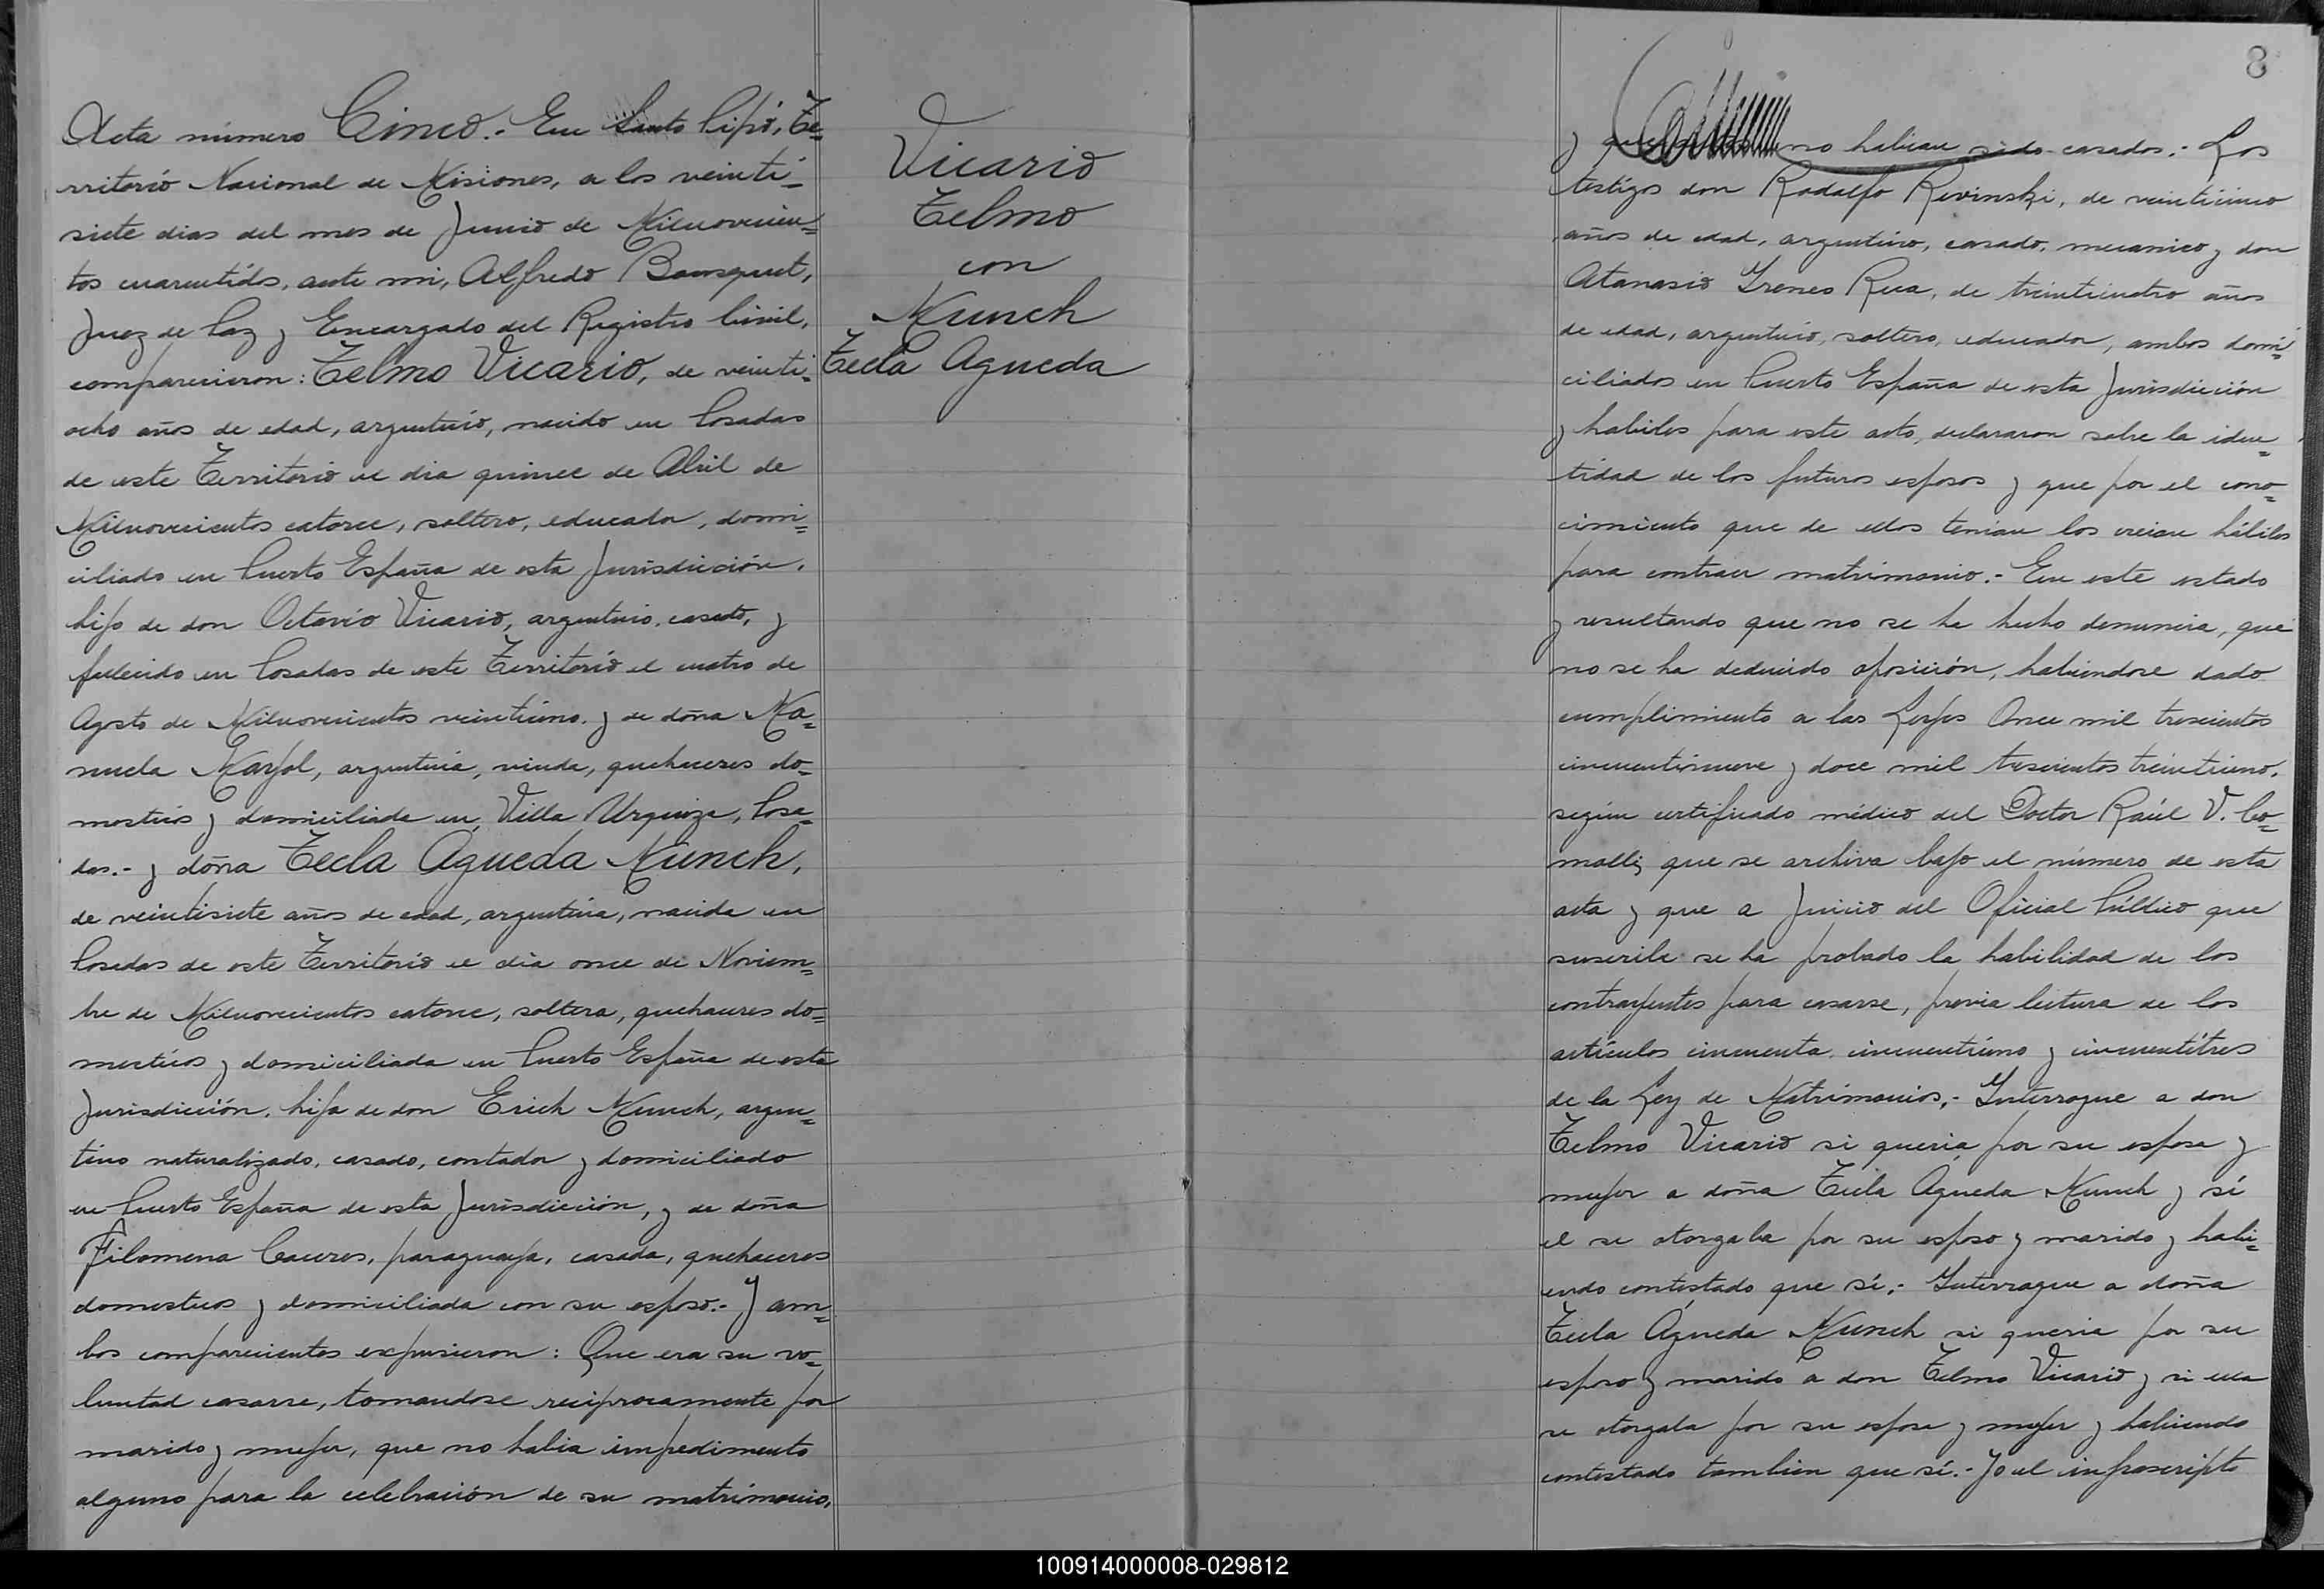 Acta número Cinco.- En Santo Pipó, Te=
rritorio Nacional de Misiones, a los veinti=
siete dias del mes de Junio de Milnovecien=
tos cuarentidós, ante mi, Alfredo
Juez de Paz y Encargado del Registro Civil,
comparecieron: Telmo Vicario, de veinti=
ocho años de edad, argentino, nacido en Posadas
de este Territorio el dia quince de Abril de
Milnovecientos catorce, soltero, educador, domi=
ciliado en Puerto España de esta Jurisdicción,
hijo de don Octavio Vicario, argentino, casado, y
fallecido en Posadas de este Territorio el cuatro de
Agosto de Milnovecientos veintiuno, y de doña Ma=
nuela Mayol, argentina, viuda, quehaceres do=
mesticos y domiciliada en Villa Urquiza, Posa=
das.- y doña Tecla Agueda Munch,
de veintisiete años de edad, argentina, nacida en
Posadas de este Territorio el dia once de Noviem=
bre de Milnovecientos catorce, soltera, quehaceres do=
mesticos y domiciliada en Puerto España de esta
Jurisdicción, hija de don Erich Munch, argen=
tino naturalizado, casado, contador y domiciliado
en Puerto España de esta Jurisdicción, y de doña
Filomena Caceres, paraguaya, casada, quehaceres
domesticos y domiciliada con su esposo.- Y am=
bos comparecientes expusieron: Que era su vo=
luntad casarse, tomandose reciprocamente por
marido y mujer, que no habia impedimento
alguno para la celebración de su matrimonio,
Vicario
Telmo
con
Munch
Tecla Agueda
8
y que no habian sido casados.- Los
testigos don Rodolfo Revinski, de veinticinco
años de edad, argentino, casado, mecanico y don
Atanasio Ireneo Rua, de treinticuatro años
de edad, argentino, soltero, educador, ambos domi=
ciliados en Puerto España de esta Jurisdicción
y habiles para este acto, declararon sobre la iden=
tidad de los futuros esposos y que por el cono=
cimiento que de ellos tenian los creian hábiles
para contraer matrimonio.- En este estado
y resultando que no se ha hecho denuncia, que
no se ha deducido oposición, habiendose dado
cumplimiento a las Leyes Once mil trescientos
cincuentinueve y doce mil trescientos treintiuno,
según certificado médico del Doctor Raúl V. Co=
molli, que se archiva bajo el número de esta
acta y que a Juicio del Oficial Público que
suscribe se ha probado la habilidad de los
contrayentes para casarse, previa lectura de los
artículos cincuenta, cincuentiuno y cincuentitres
de la Ley de Matrimonios,- Interrogue a don
Telmo Vicario si queria por su esposa y
mujer a doña Tecla Agueda Munch y sí
el se otorgaba por su esposo y marido y habi=
endo contestado que sí.- Interrogue a doña
Tecla Agueda Munch si queria por su
esposo y marido a don Telmo Vicario y si ella
se otorgaba por su esposa y mujer y habiendo
contestado tambien que sí.- Yo el infrascripto
100914000008-029812